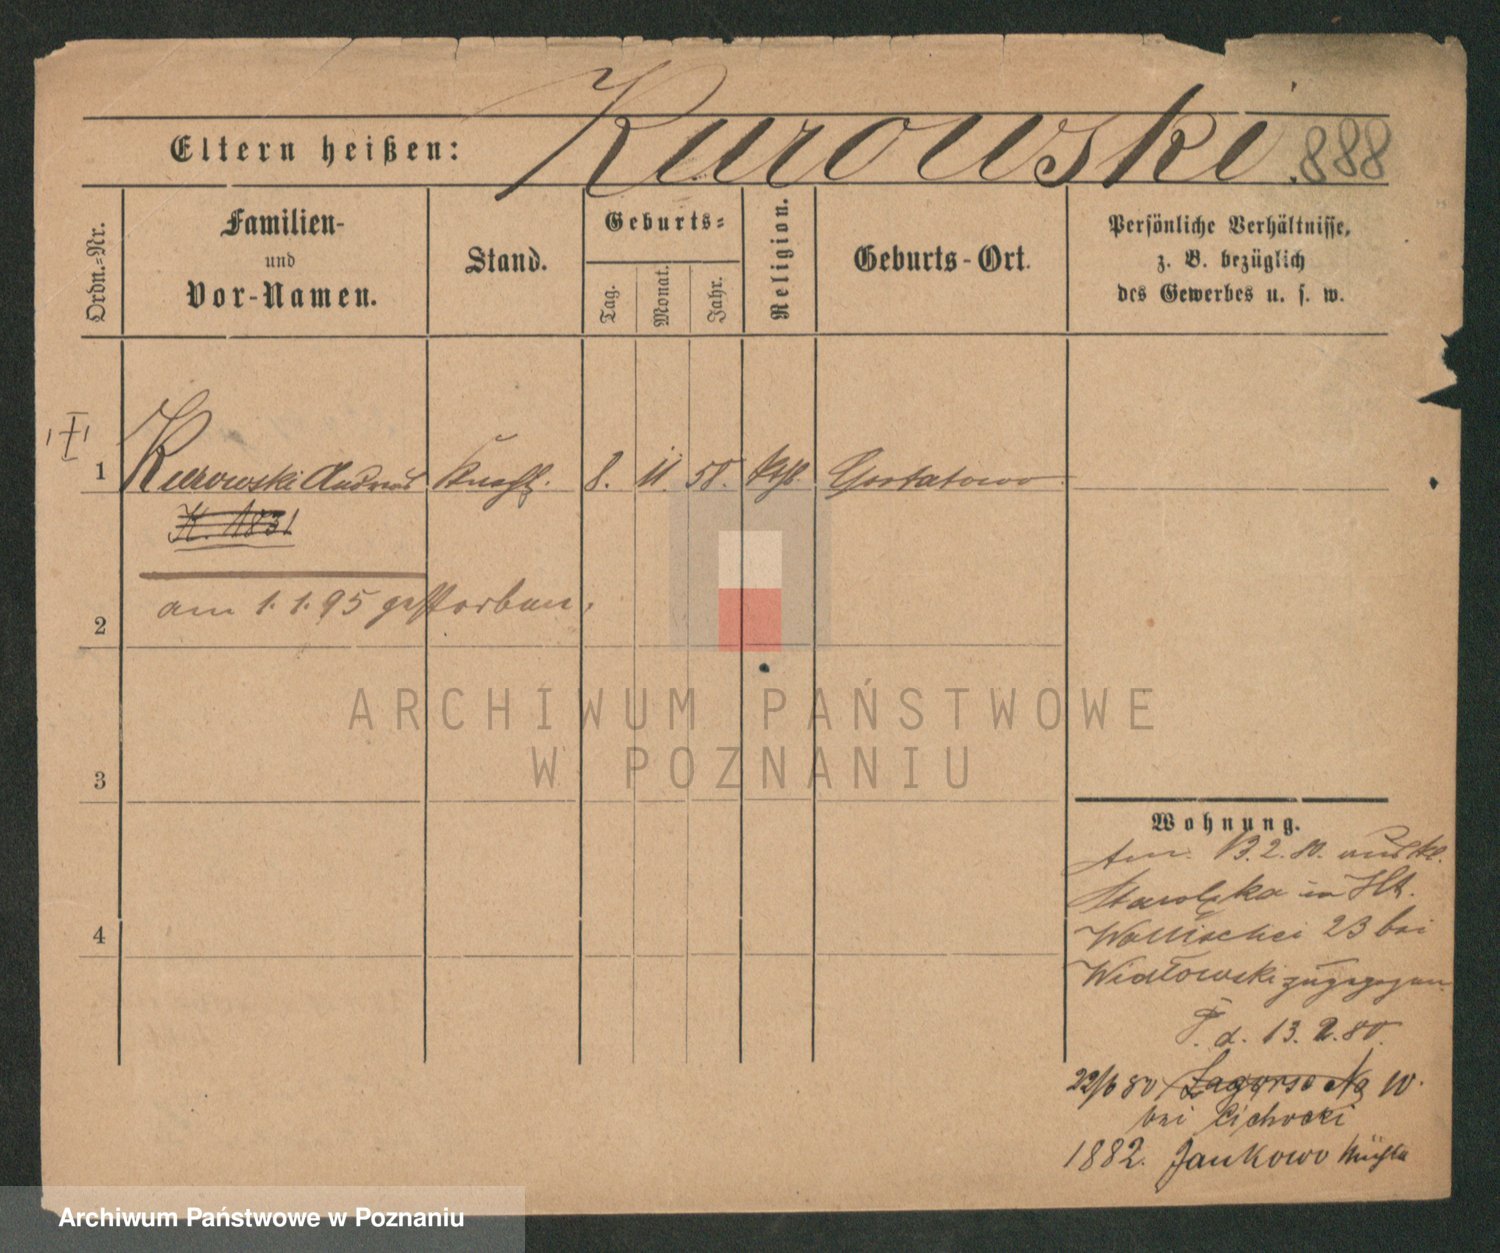 Eltern heißen: Kurowski. 888
Ordn.-Nr.
Familien-
und
Vor-Namen.
Stand.
Geburts-
Tag.
Monat.
Jahr.
Religion.
Geburts-Ort.
Persönliche Verhältnisse,
z. B. bezüglich
des Gewerbes u. s. w.
I
1 Kurowski Andreas Knecht. 8. 11. 58. kth. Gortatowo
K. 1831
2 am 1.1.95 gestorben.
3
4
ARCHIWUM PAŃSTWOWE
W POZNANIU
Wohnung.
Am 13.2.80. aus Kl.
Starolęka in
Wallischei 23 bei
Widłowski zugegangen
d. 13.2.80.
22/6 80 Zagorse No 10.
bei Cichocki
1882. Jankowo Mühle
Archiwum Państwowe w Poznaniu